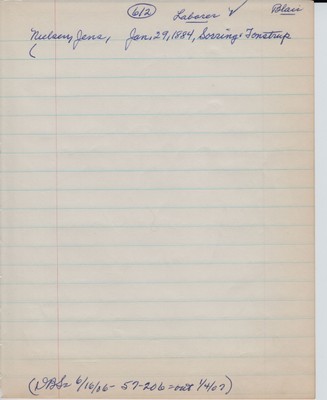 612 Laborer ✓ Blair
Nielsen, Jens, Jan. 29, 1884, Sorring-Tonstrup
(
(DBS= 6/16/06- 57-206=out 1/4/07)